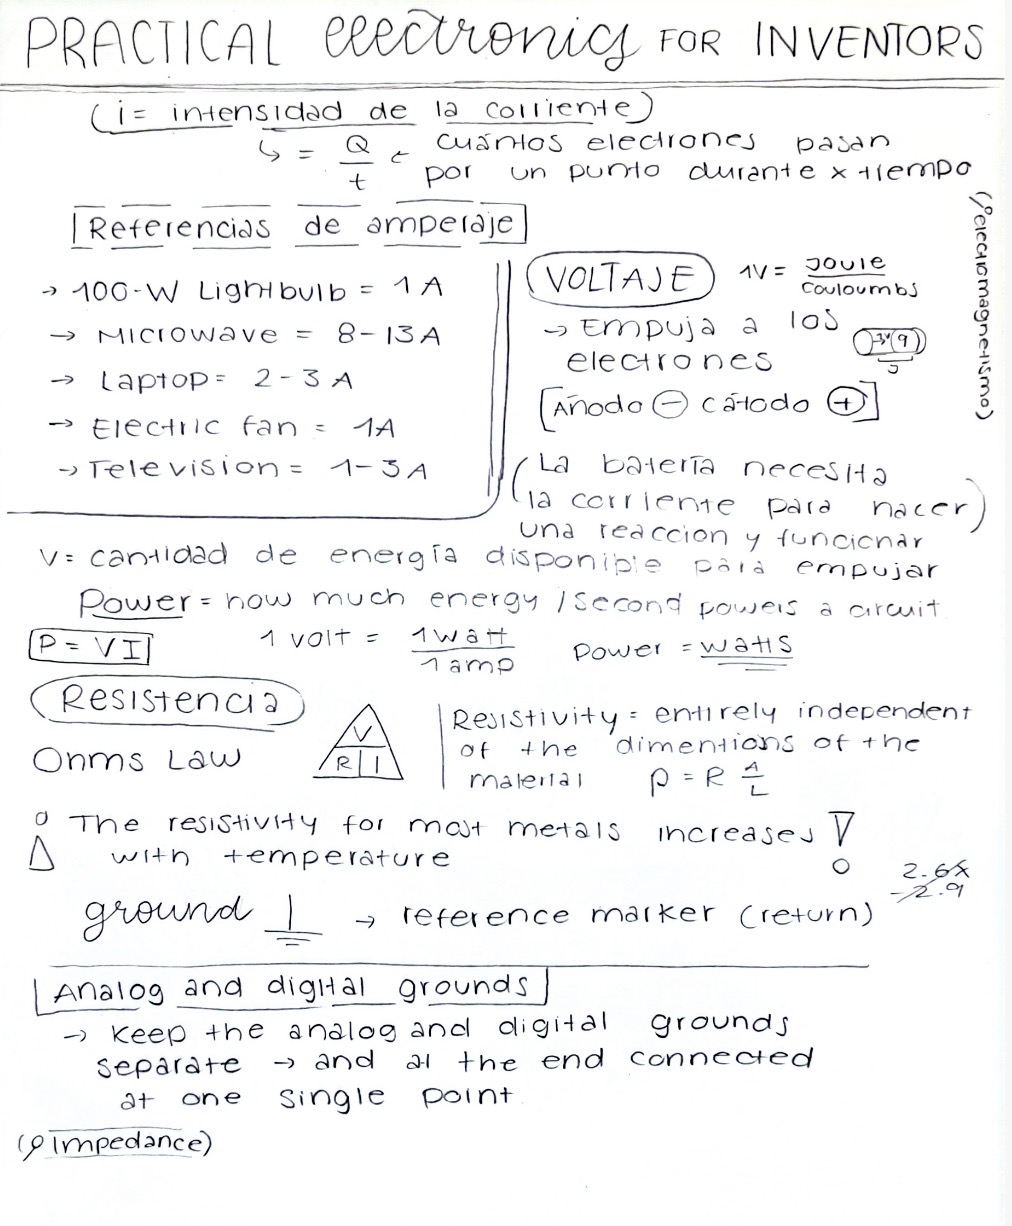 PRACTICAL electronics FOR INVENTORS
(i = intensidad de la corriente)
↳ = Q/t ← cuántos electrones pasan
por un punto durante x tiempo
Referencias de amperaje
→ 100-W Lightbulb = 1 A
→ Microwave = 8-13 A
→ Laptop = 2-3 A
→ Electric fan = 1A
→ Television = 1-3 A
VOLTAJE 1V = Joule/Couloumbs
→ Empuja a los
electrones
[Añodo ⊖ cátodo ⊕]
(La batería necesita
la corriente para hacer)
una reaccion y funcionar
(electromagnetismo)
V = cantidad de energía disponible para empujar
Power = how much energy / second powers a circuit
P = VI 1 volt = 1 watt/1 amp Power = watts
Resistencia
Ohms Law
V
R I
Resistivity = entirely independent
of the dimentions of the
material ρ = R A/L
The resistivity for most metals increases
with temperature
2.6x
-2.9
ground → reference marker (return)
Analog and digital grounds
→ Keep the analog and digital grounds
separate → and at the end connected
at one single point
(Impedance)